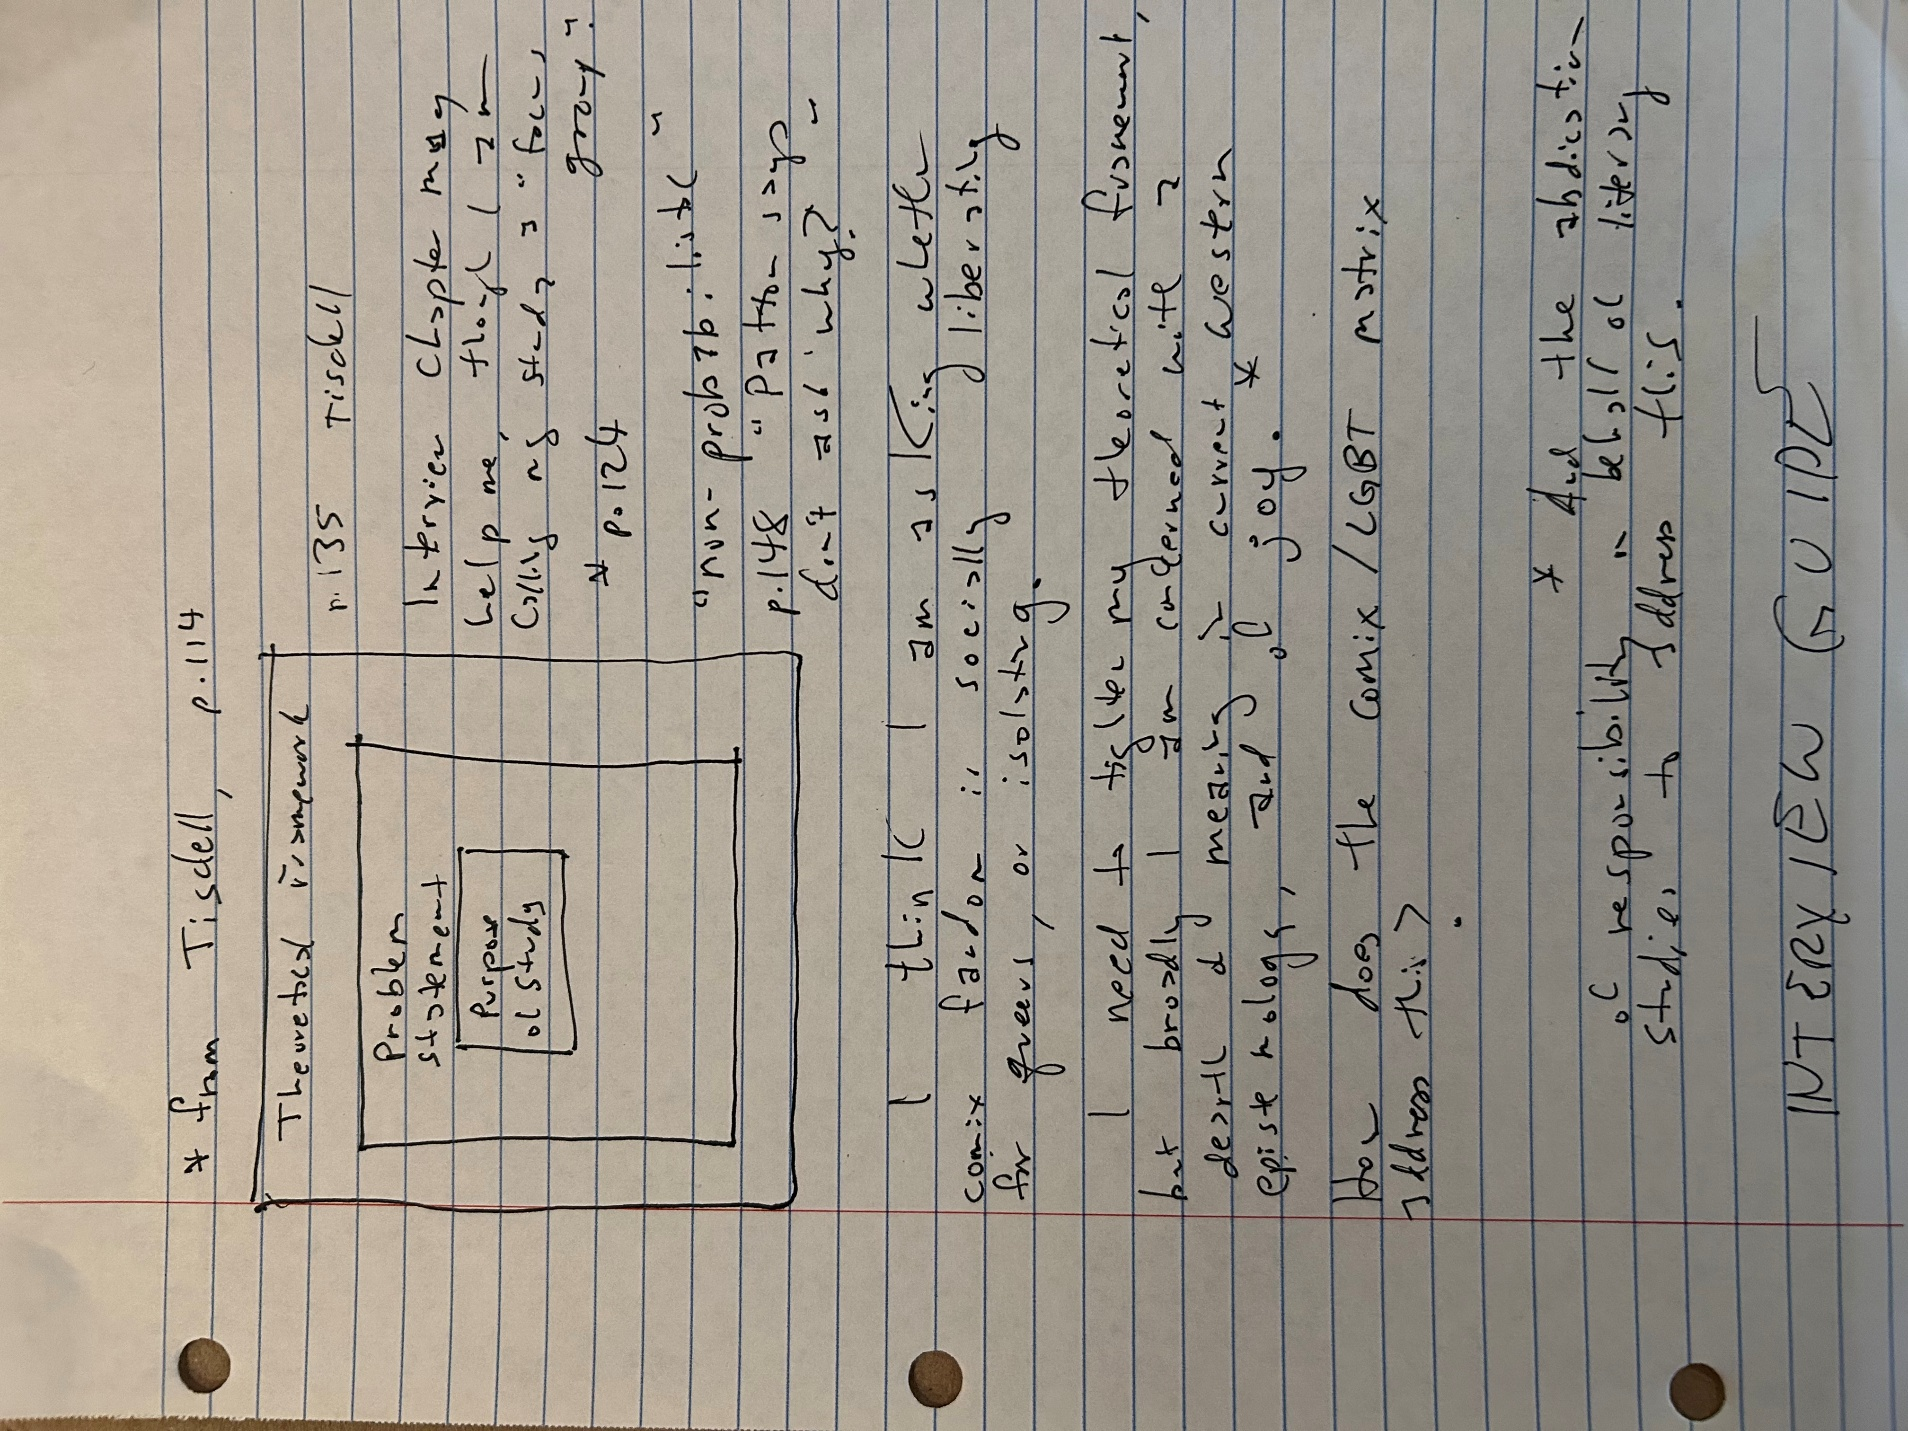 * from Tisdell, p.114
Theoretical Framework
Problem
statement
Purpose
of study
p.135 Tisdell
Interview chapter may
help me, though I am
calling my study a "focus
group".
* p.124
"non-probabilistic"
p.148 "Patton says
don't ask 'why?'"
I think I am asking whether
comix fandom is socially liberating
for queers, or isolating.
I need to tighten my theoretical framement,
but broadly I am concerned with a
dearth of meaning in current western
epistemology, and of joy. *
How does the comix/LGBT matrix
address this?
* And the abdication
of responsibility in behalf of literary
studies to address this.
INTERVIEW GUIDE